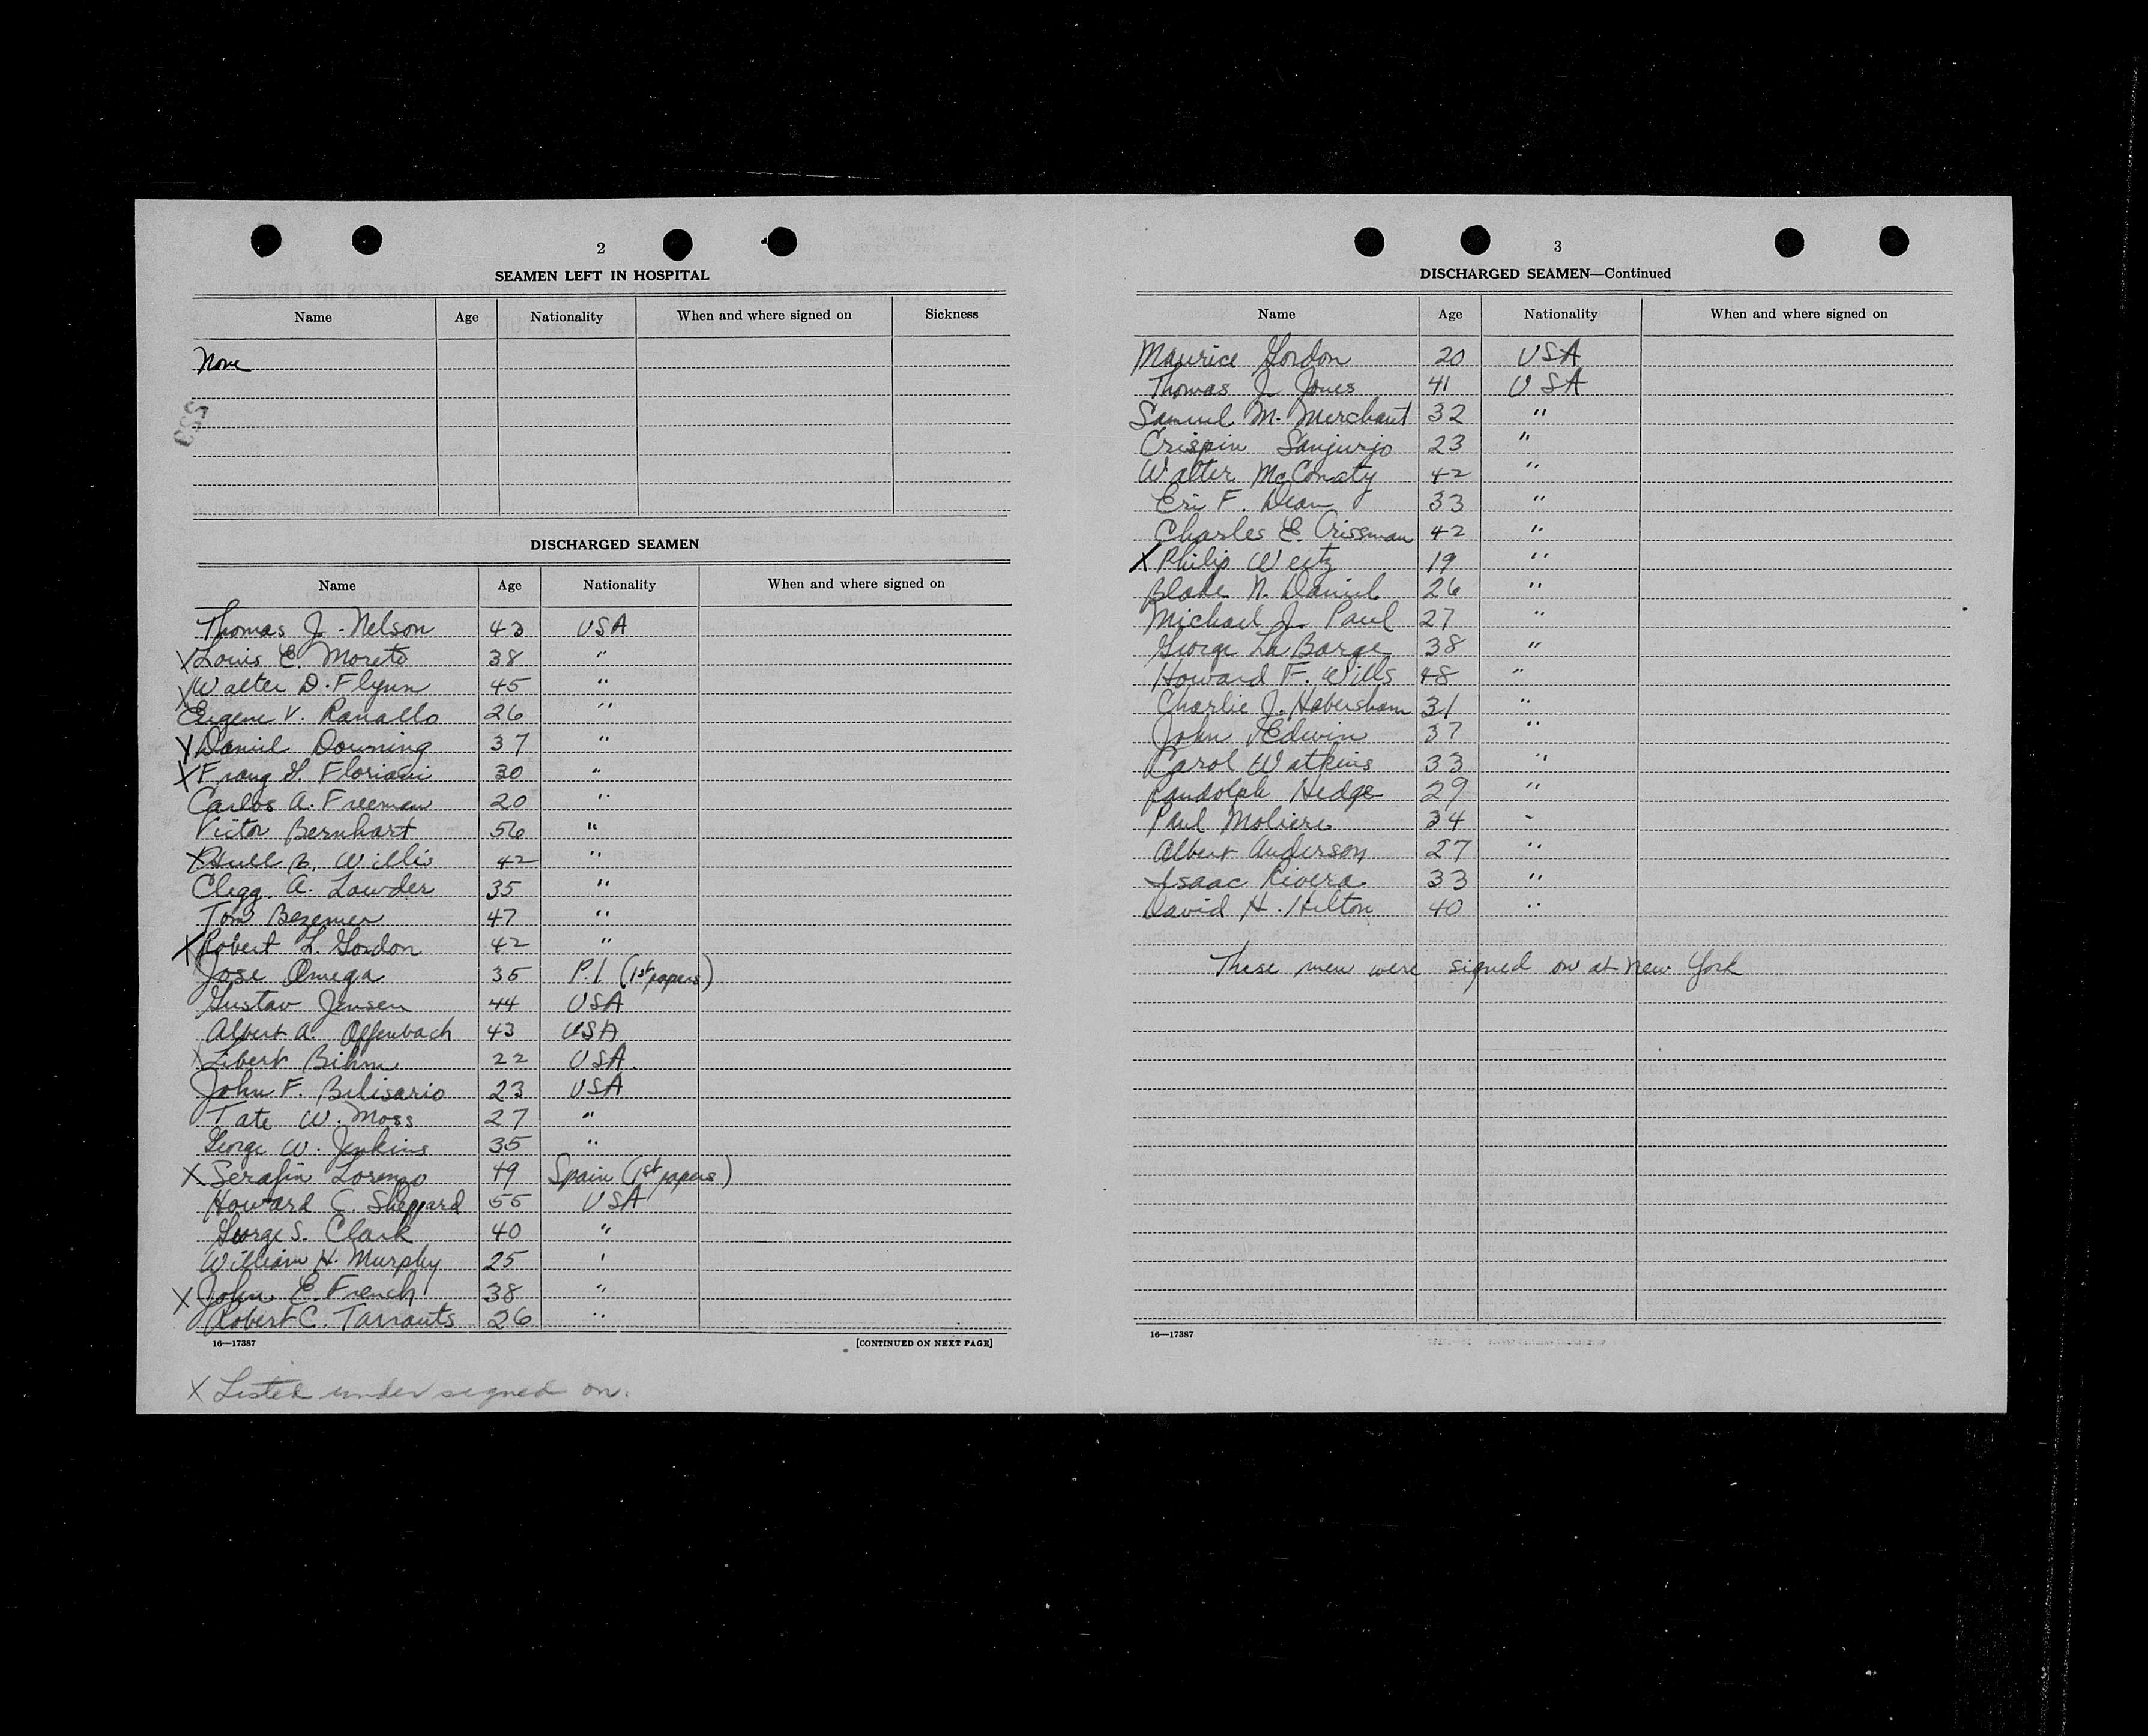 2
SEAMEN LEFT IN HOSPITAL
Name Age Nationality When and where signed on Sickness
None
DISCHARGED SEAMEN
Name Age Nationality When and where signed on
Thomas J. Nelson 43 USA
X Louis E. Moreto 38 "
X Walter D. Flynn 45 "
Eugene V. Ranallo 26 "
X Daniel Downing 37 "
X Frang Floriani 30 "
Carlos A. Freeman 20 "
Victor Bernhart 56 "
X Hull B. Willis 42 "
Clegg. A. Lawder 35 "
Tom Bezemer 47 "
X Robert L. Gordon 42 "
Jose Omega 35 P.I. (1st papers)
Gustav Jensen 44 USA
Albert A. Offenbach 43 USA
X Libert Bihm 22 USA.
John F. Belisario 23 USA
Tate W. Moss 27 "
George W. Jenkins 35 "
X Serafin Lorenzo 49 Spain (1st papers)
Howard C. Sheppard 55 USA
George S. Clark 40 "
William H. Murphy 25 "
X John E. French 38 "
Robert C. Tarrants 26 "
16—17387 [CONTINUED ON NEXT PAGE]
X Listed under signed on.
3
DISCHARGED SEAMEN—Continued
Name Age Nationality When and where signed on
Maurice Gordon 20 USA
Thomas J. Jones 41 USA
Samuel M. Merchant 32 "
Crispin Sanjurjo 23 "
Walter McConaty 42 "
Eri F. Dean 33 "
Charles E. Crissman 42 "
X Philip Weitz 19 "
Blade N. Daniel 26 "
Michael J. Paul 27 "
George La Barge 38 "
Howard F. Wills 48 "
Charlie J. Habersham 31 "
John Edwin 37 "
Carol Watkins 33 "
Randolph Hedge 29 "
Paul Moliere 34 "
Albert Anderson 27 "
Isaac Rivera 33 "
David H. Hilton 40 "
These men were signed on at New York
16—17387